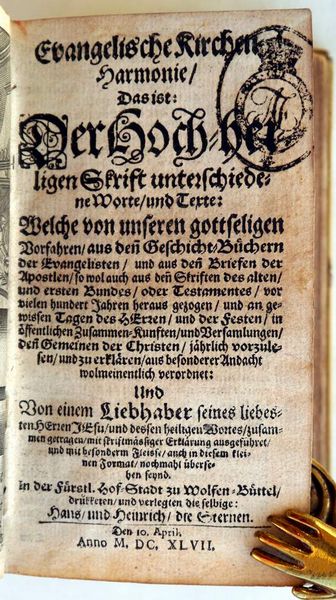 Evangelische Kirchen
Harmonie/
Das ist:
Der Hoch-hei
ligen Skrift unterschiede-
ne Worte/und Texte:
Welche von unseren gottseligen
Vorfahren/aus deñ Geschicht-Büchern
der Evangelisten/ und aus deñ Briefen der
Apostlen/so wol auch aus deñ Skriften des alten/
und ersten Bundes/ oder Testamentes/ vor
vielen hundert Jahren heraus gezogen/ und an ge-
wissen Tagen des HErzen/ und der Festen/ in
öffentlichen Zusammen-Kunften/und Versamlungen/
deñ Gemeinen der Christen/ jährlich vorzule-
sen/und zu erklären/aus besonderer Andacht
wolmeinentlich verordnet:
Und
Von einem Liebhaber seines liebes-
ten HErren JEsu/und dessen heiligen Wortes/zusam-
men getragen/mit skriftmässiger Erklärung ausgeführet/
und mit besonderm Fleisse/auch in diesem klei-
nen Format/nochmahl überse-
hen seynd.
In der Fürstl. Hof-Stadt zu Wolfen-Büttel/
drükketen/und verlegten die selbige:
Hans/und Heinrich/ die Sternen.
Den 10. April.
Anno M. DC. XLVII.